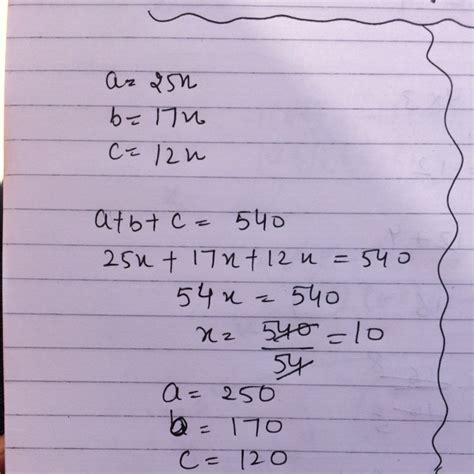 a = 25x
b = 17x
c = 12x
a+b+c = 540
25x + 17x + 12x = 540
54x = 540
x = 540/54 = 10
a = 250
b = 170
c = 120